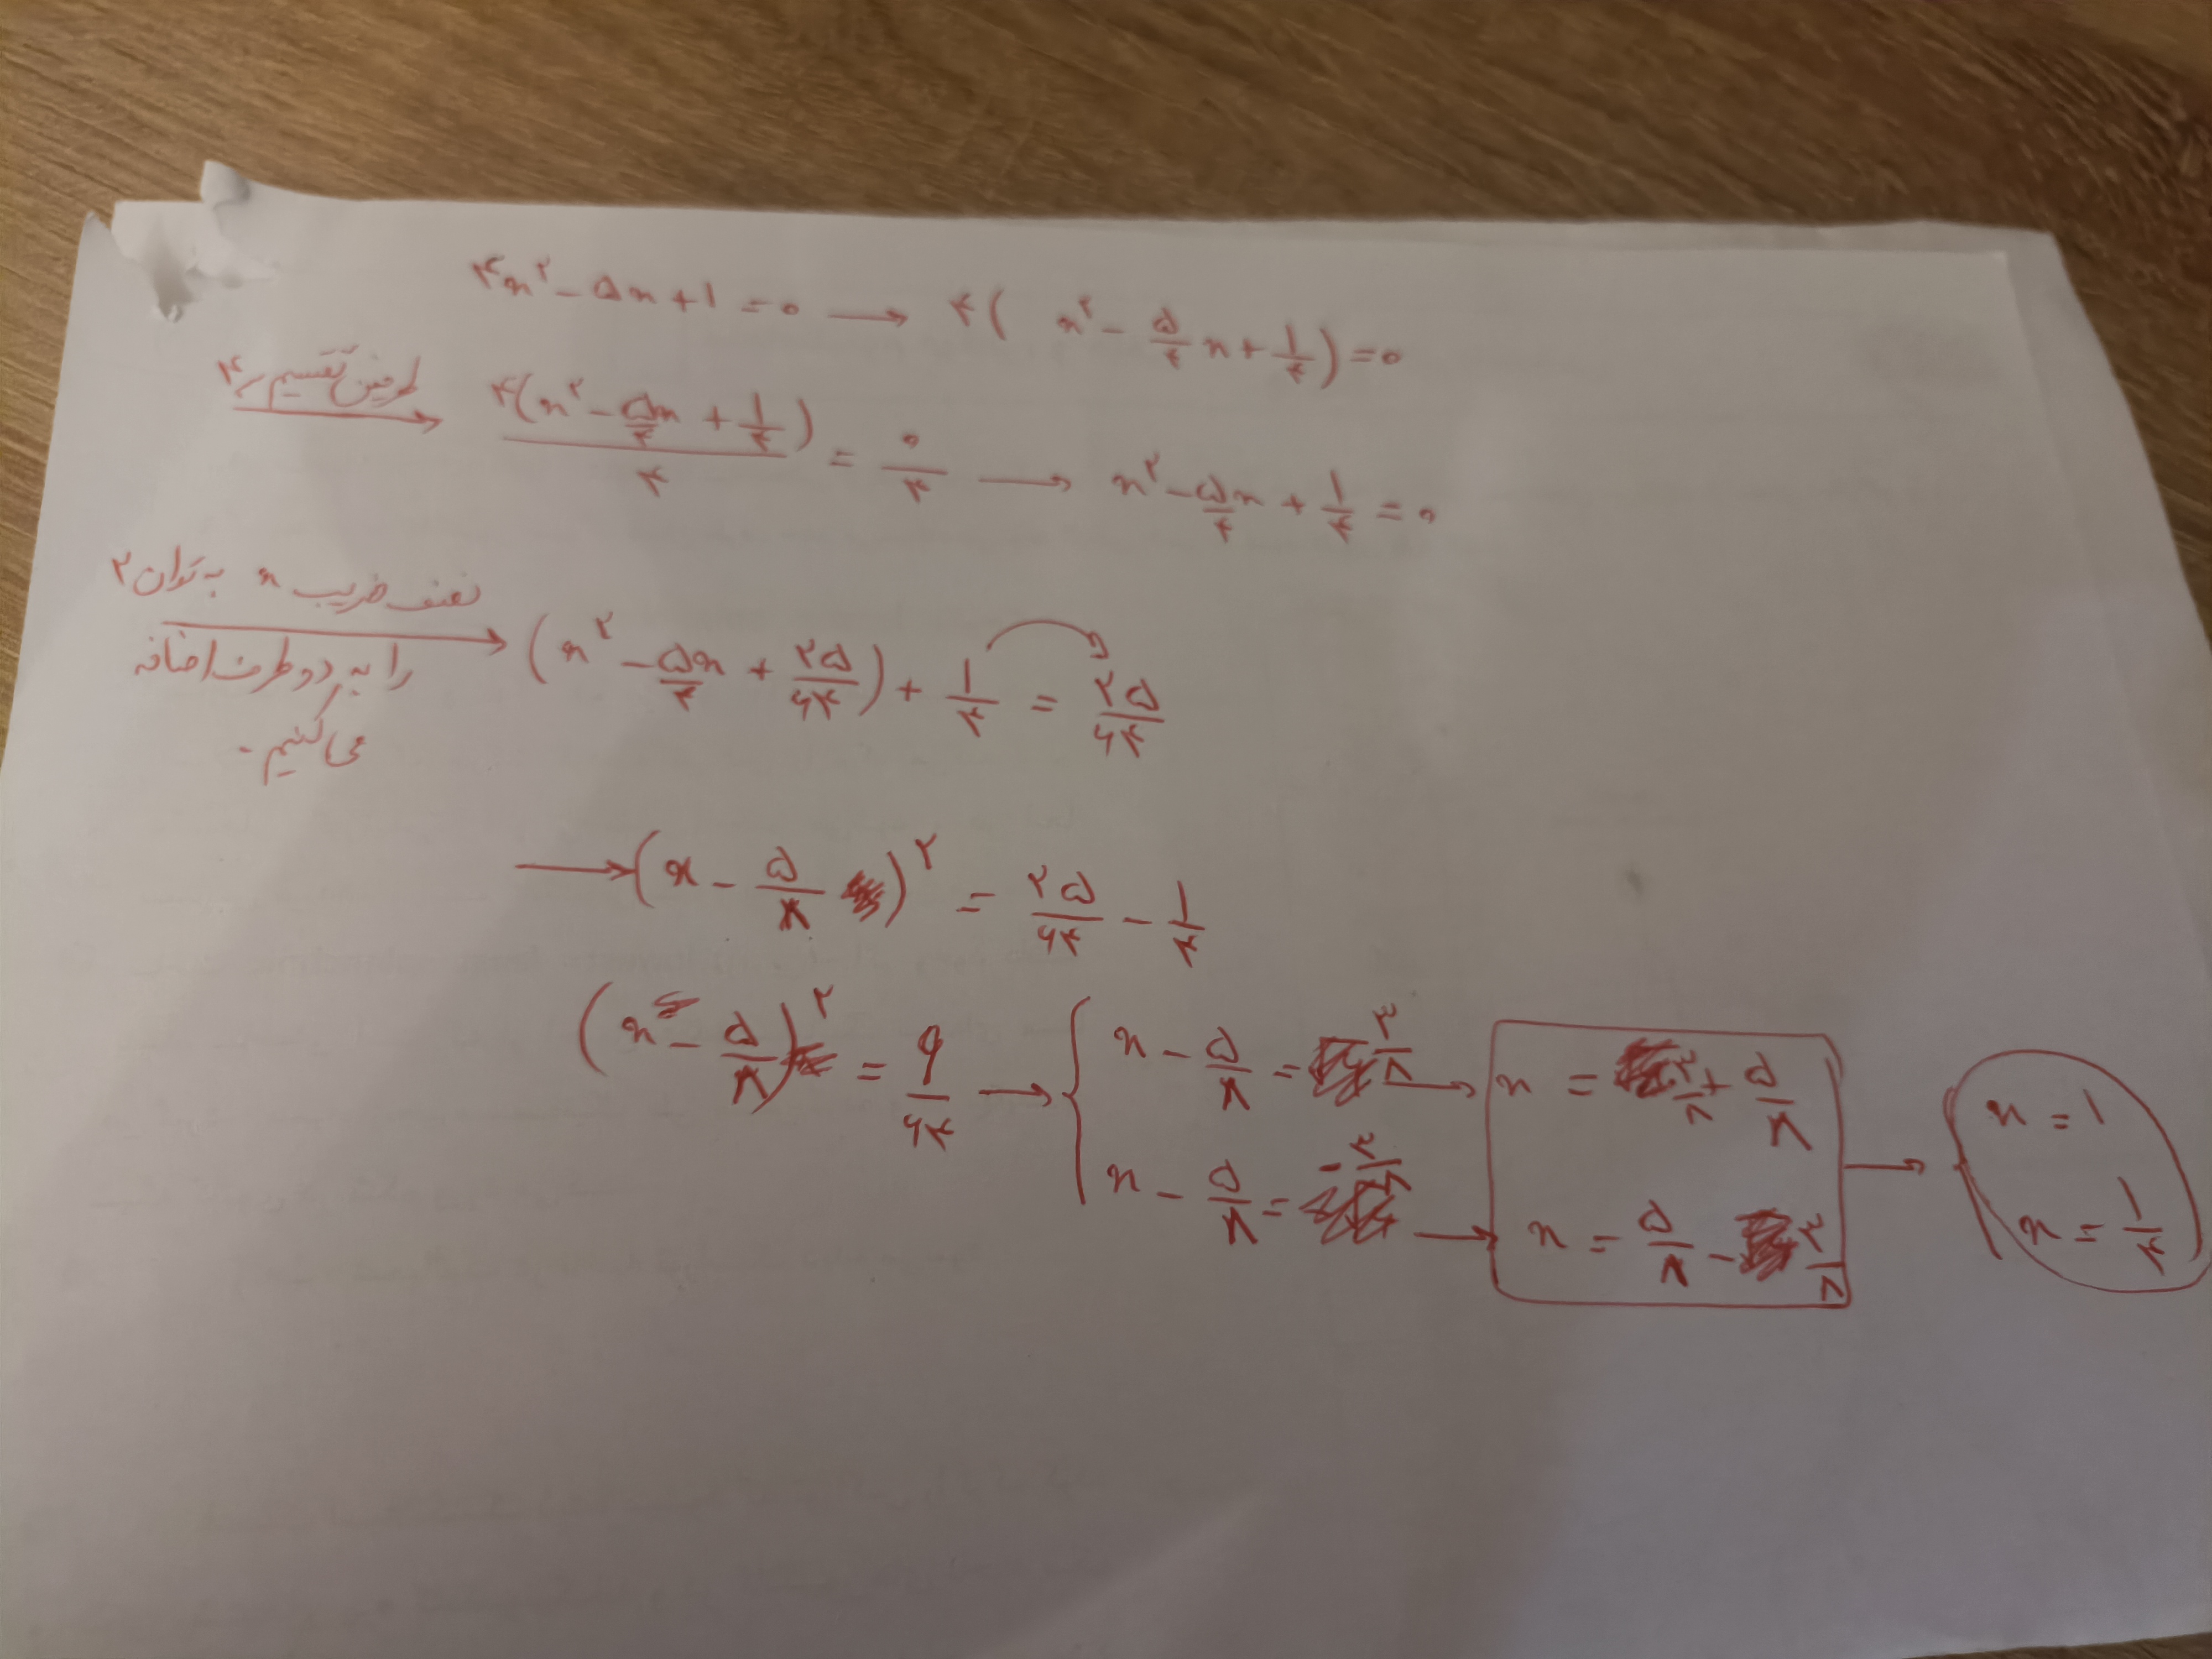 ۴x² - ۵x + ۱ = ۰ → ۴( x² - ۵/۴ x + ۱/۴ ) = ۰
طرفین تقسیم بر ۴ → ۴(x² - ۵x/۴ + ۱/۴) / ۴ = ۰/۴ → x² - ۵x/۴ + ۱/۴ = ۰
نصف ضریب x به توان ۲
را به دو طرف اضافه
می‌کنیم.
→ (x² - ۵x/۴ + ۲۵/۶۴) + ۱/۴ = ۲۵/۶۴
→ (x - ۵/۸)² = ۲۵/۶۴ - ۱/۴
(x - ۵/۸)² = ۹/۶۴ → { x - ۵/۸ = ۳/۸ → x = ۳/۸ + ۵/۸ → x = ۱
x - ۵/۸ = -۳/۸ → x = ۵/۸ - ۳/۸ x = ۱/۴